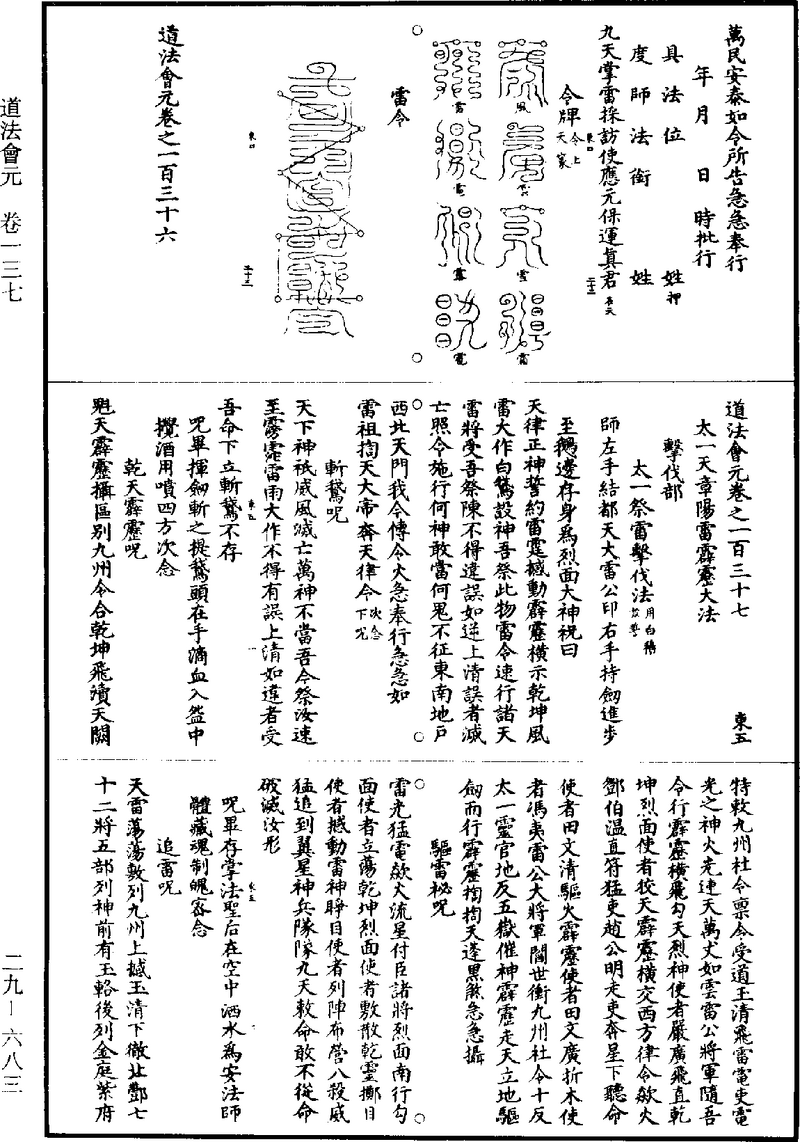 萬民安泰如令所告急急奉行
年月日時批行
具法位姓押
度師法銜姓
九天掌雷採訪使應元保運真君
令牌
風
雲
雷
雷令
道法會元卷之一百三十六
道法會元卷之一百三十七
東五
太一天章陽雷霹靂大法
擊伐部
太一祭雷擊伐法
師左手結都天大雷公印右手持劒進步
至鵝邊存身為烈面大神祝曰
天律正神誓約雷霆撼動霹靂橫示乾坤風
雷大作白鵞設神吾祭此物雷令速行諸天
雷將受吾祭陳不得違誤如逆上清誤者滅
亡照令施行何神敢當何鬼不征東南地戶
西北天門我令傳令火急奉行急急如
雷祖掏天大帝奔天律令次念下咒
斬鵞咒
天下神祇威風滅亡萬神不當吾令祭汝速
至霶霮雷雨大作不得有誤上清如違者受
吾命下立斬鵞不存
咒畢揮劒斬之提鵞頭在手滴血入盆中
攪酒用噴四方次念
乾天霹靂咒
魁天霹靂攝區別九州令合乾坤飛瀆天關
特敕九州社令票令受道玉清飛雷電吏電
光之神火光連天萬丈如雲雷公將軍隨吾
令行霹靂橫飛勾天烈神使者嚴廣飛直乾
坤烈面使者狡天霹靂橫交西方律令欻火
鄧伯溫直符猛吏趙公明走吏奔星下聽命
使者田文清驅火霹靂使者田文廣折木使
者馮夷雷公大將軍閻世衝九州社令十反
太一靈官地反五嶽催神霹靂走天立地驅
劒而行霹靂掏掏天蓬黑煞急急攝
驅雷秘咒
雷光猛電欻火流星付臣諸將烈面南行勾
面使者立蕩乾坤烈面使者敷散乾靈擲目
使者撼動雷神睜目使者列陣布營八殺威
猛追到翼星神兵隊隊九天敕命敢不從命
破滅汝形
咒畢存掌法聖后在空中洒水為安法師
體藏魂制魄密念
追雷咒
天雷蕩蕩敷列九州上撼玉清下徹北酆七
十二將五部列神前有玉輅後列金庭紫府
道法會元 卷一三七
二九-六八三